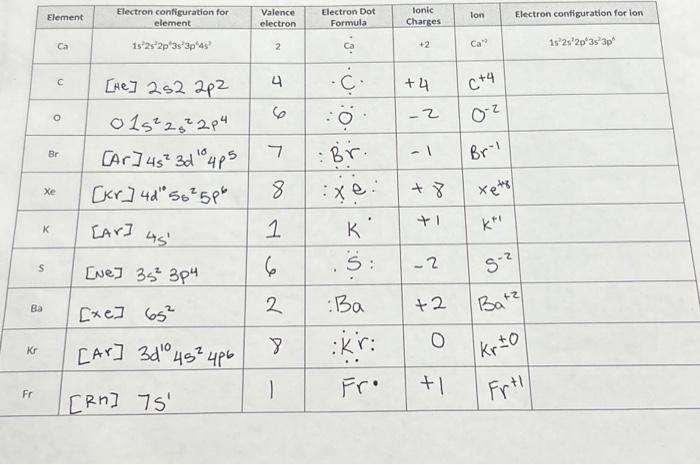 Element Electron configuration for element Valence electron Electron Dot Formula Ionic Charges Ion Electron configuration for ion
Ca 1s²2s²2p⁶3s²3p⁶4s² 2 Ca +2 Ca⁺² 1s²2s²2p⁶3s²3p⁶
C [He] 2s2 2p2 4 ·C· +4 C⁺⁴
O O 1s² 2s² 2p⁴ 6 :O· -2 O⁻²
Br [Ar] 4s² 3d¹⁰ 4p⁵ 7 :Br· -1 Br⁻¹
Xe [Kr] 4d¹⁰ 5s² 5p⁶ 8 :xe: +8 xe⁺⁸
K [Ar] 4s¹ 1 K· +1 K⁺¹
S [Ne] 3s² 3p⁴ 6 .S: -2 S⁻²
Ba [xe] 6s² 2 :Ba +2 Ba⁺²
Kr [Ar] 3d¹⁰ 4s² 4p6 8 :Kr: 0 Kr±0
Fr [Rn] 7s¹ 1 Fr· +1 Fr⁺¹